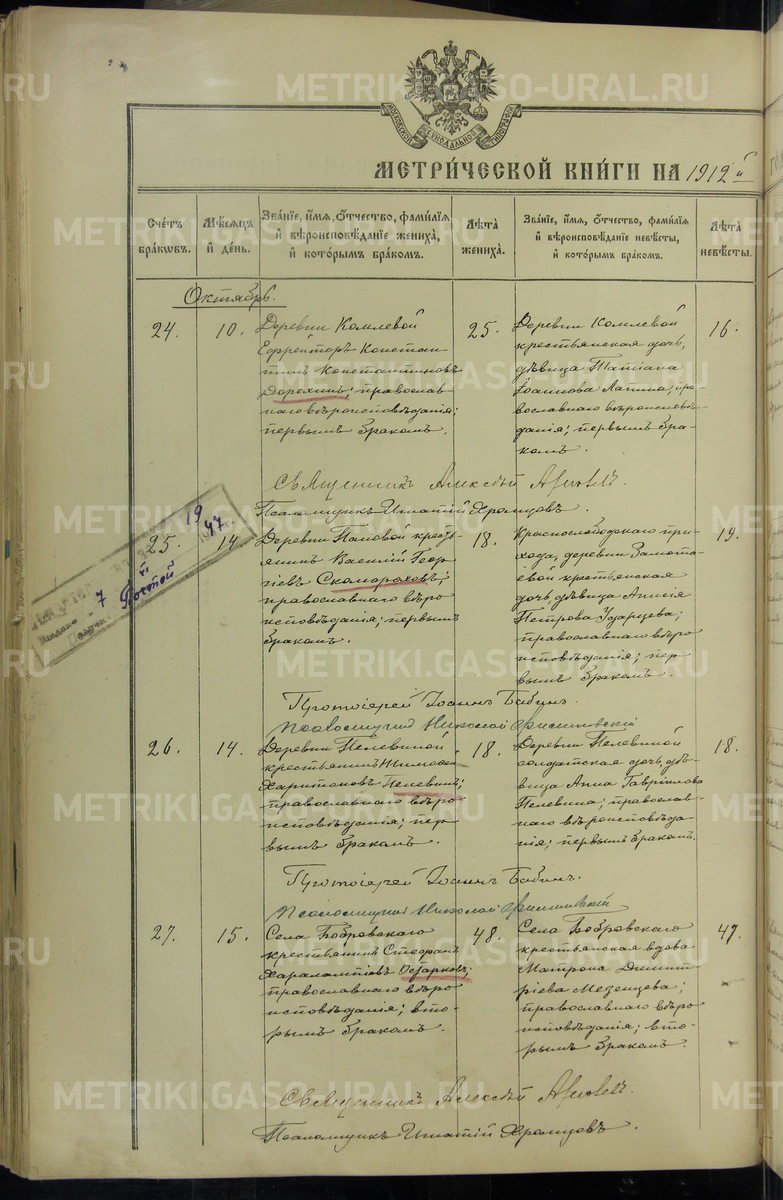 МОСКОВСКОЙ СѴНОДАЛЬНОЙ ТИПОГРАФІИ
МЕТРИ́ЧЕСКОЙ КНИ́ГИ НА 1912й
Сче́тъ бра́кωвъ.
Мѣ́сяцъ и҆ де́нь.
Зва́нїе, и҆́мя, ѻ҆́тчество, фами́лїя и҆ вѣроисповѣ́данїе жениха̀, и҆ кото́рымъ бра́комъ.
Лѣ́та жениха̀.
Зва́нїе, и҆́мя, ѻ҆́тчество, фами́лїя и҆ вѣроисповѣ́данїе невѣ́сты, и҆ кото́рымъ бра́комъ.
Лѣ́та невѣ́сты.
Октябрь.
24.
10.
Деревни Комлевой
Ефрейторъ Констан-
тинъ Константиновъ
Дорохинъ; православ-
наго вѣроисповѣданія;
первымъ бракомъ.
25.
Деревни Комлевой
крестьянская дочь,
дѣвица Татіана
Іоаннова Лапина; пра-
вославнаго вѣроисповѣ-
данія; первымъ бра-
комъ.
16.
Священникъ Алексѣй
Псаломщикъ Игнатій Храмцовъ.
25.
14.
Деревни Пановой кресть-
янинъ Василій Геор-
гіевъ Скомороховъ;
православнаго вѣро
исповѣданія; первымъ
бракомъ.
18.
Краснослободскаго при-
хода, деревни
крестьянская
дочь дѣвица Анисія
Петрова Ударцева;
православнаго вѣро
исповѣданія; пер
вымъ бракомъ.
19.
19 47
7
Протоіерей Іоаннъ Бабинъ.
Псаломщикъ Николай
26.
14.
Деревни Пелевиной
крестьянинъ
Харитоновъ Пелевинъ;
православнаго вѣро
исповѣданія; пер
вымъ бракомъ.
18.
Деревни Пелевиной
солдатская дочь, дѣ-
вица Анна Гавріилова
Пелевина; православ-
наго вѣроисповѣда
нія; первымъ бракомъ.
18.
Протоіерей Іоаннъ Бабинъ.
Псаломщикъ Николай
27.
15.
Села Бобровскаго
крестьянинъ Стефанъ
Харалампіевъ Остарковъ;
православнаго вѣро
исповѣданія; вто-
рымъ бракомъ.
48.
Села Бобровскаго
крестьянская вдова
Матрона Димит
ріева Мезенцева;
православнаго вѣро
исповѣданія; вто-
рымъ бракомъ.
47.
Священникъ Алексѣй
Псаломщикъ Игнатій Храмцовъ.
METRIKI.GASO-URAL.RU